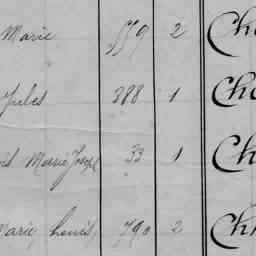 Marie 559 2 Ch
Jules 388 1 Ch
Marie Joseph 33 1 Ch
Marie Louis 790 2 Ch